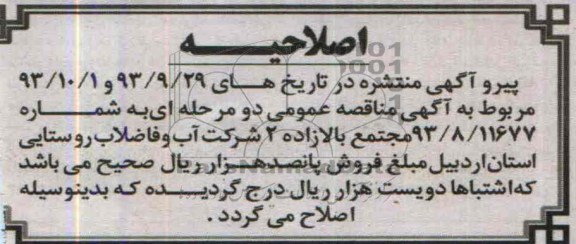 اصلاحیـــه
پیرو آگهی منتشره در تاریخ هـــای ۹۳/۹/۲۹ و ۹۳/۱۰/۱
مربوط به آگهی مناقصه عمومی دو مرحله ای به شمـــــاره
۹۳/۸/۱۱۶۷۷ مجتمع بالازاده ۲ شرکت آب وفاضلاب روستایی
استان اردبیل مبلغ فروش پانصدهـــزار ریال صحیح می باشد
که اشتباها دویست هزار ریال درج گردیـــــده که بدینوسیله
اصلاح می گردد .